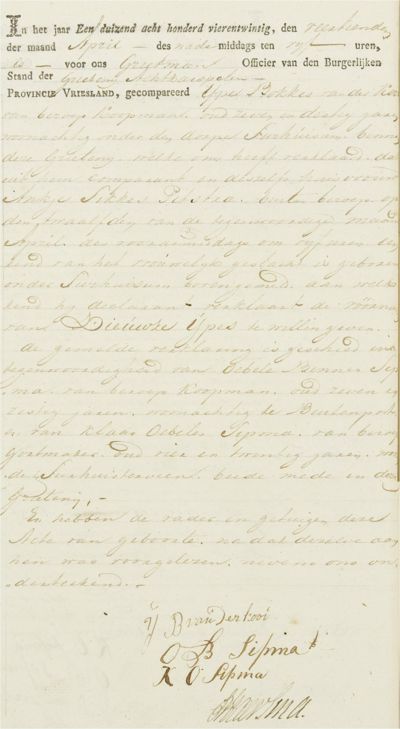 In het jaar Een duizend acht honderd vierentwintig, den veertienden
der maand April – des nademiddags ten vyf – uren,
is – voor ons Grietman Officier van den Burgerlijken
Stand der Grietenij Achtkarspelen –
Provincie Vriesland, gecompareerd Ype Bokkes van der Kooi
van beroep Koopman, oud zeven en dertig jaren
woonachtig onder den dorpe Surhuizum binnen
deze Grietenij, welke ons heeft verklaard, dat
uit hem comparant en deszelfs huisvrouw
Ankje Sikkes zonder beroep op
den twaalfden van de tegenwoordige maand
April des voormiddags om vyf uren een
kind van het vrouwelijk geslacht is geboren
onder Surhuizum bovengemeld, aan welk
kind hy declarant verklaart de namen
van Dieuwke Ypes te willen geven.
De gemelde verklaring is geschied in de
tegenwoordigheid van Oebele Binnes Sip-
ma, van beroep Koopman, oud zeven en
zestig jaren, woonachtig te Buitenpost
en van Klaas Oebeles Sipma, van beroep
oud vier en twintig jaren, won
de Surhuisterveen, beide mede in deze
Grietenij, –
En hebben de vader en getuigen deze
Acte van geboorte, na dat dezelve aan
hen was voorgelezen, nevens ons on-
derteekend. –
Y B van der kooi
O B Sipma
K O Sipma